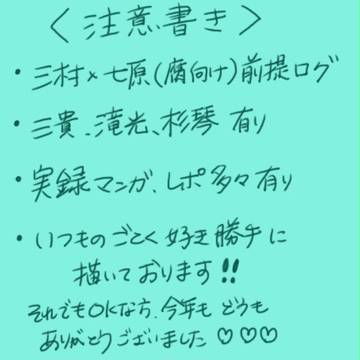 〈注意書き〉
・三村×七原(腐向け)前提ログ
・三貴、滝光、杉琴 有り
・実録マンガ、レポ多々有り
・いつものごとく好き勝手に
描いております!!
それでもOKな方、今年も どうも
ありがとうございました♡♡♡